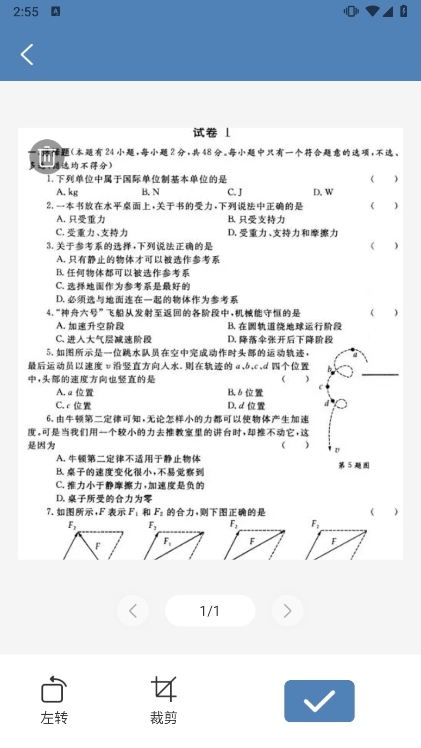 2:55
试卷 1
一、选择题(本题有24小题,每小题2分,共48分。每小题中只有一个符合题意的选项,不选、
多选、错选均不得分)
1. 下列单位中属于国际单位制基本单位的是 ( )
A. kg B. N C. J D. W
2. 一本书放在水平桌面上,关于书的受力,下列说法中正确的是 ( )
A. 只受重力 B. 只受支持力
C. 受重力、支持力 D. 受重力、支持力和摩擦力
3. 关于参考系的选择,下列说法正确的是 ( )
A. 只有静止的物体才可以被选作参考系
B. 任何物体都可以被选作参考系
C. 选择地面作为参考系是最好的
D. 必须选与地面连在一起的物体作为参考系
4. “神舟六号”飞船从发射至返回的各阶段中,机械能守恒的是 ( )
A. 加速升空阶段 B. 在圆轨道绕地球运行阶段
C. 进入大气层减速阶段 D. 降落伞张开后下降阶段
5. 如图所示是一位跳水队员在空中完成动作时头部的运动轨迹,
最后运动员以速度 v 沿竖直方向入水. 则在轨迹的 a、b、c、d 四个位置
中,头部的速度方向也竖直的是 ( )
A. a 位置 B. b 位置
C. c 位置 D. d 位置
a
b
c
d
v
第 5 题图
6. 由牛顿第二定律可知,无论怎样小的力都可以使物体产生加速
度,可是当我们用一个较小的力去推教室里的讲台时,却推不动它,这
是因为 ( )
A. 牛顿第二定律不适用于静止物体
B. 桌子的速度变化很小,不易觉察到
C. 推力小于静摩擦力,加速度是负的
D. 桌子所受的合力为零
7. 如图所示,F 表示 F₁ 和 F₂ 的合力,则下图正确的是 ( )
F₂ F₂ F₂ F₂
F F₁ F F
1/1
左转 裁剪